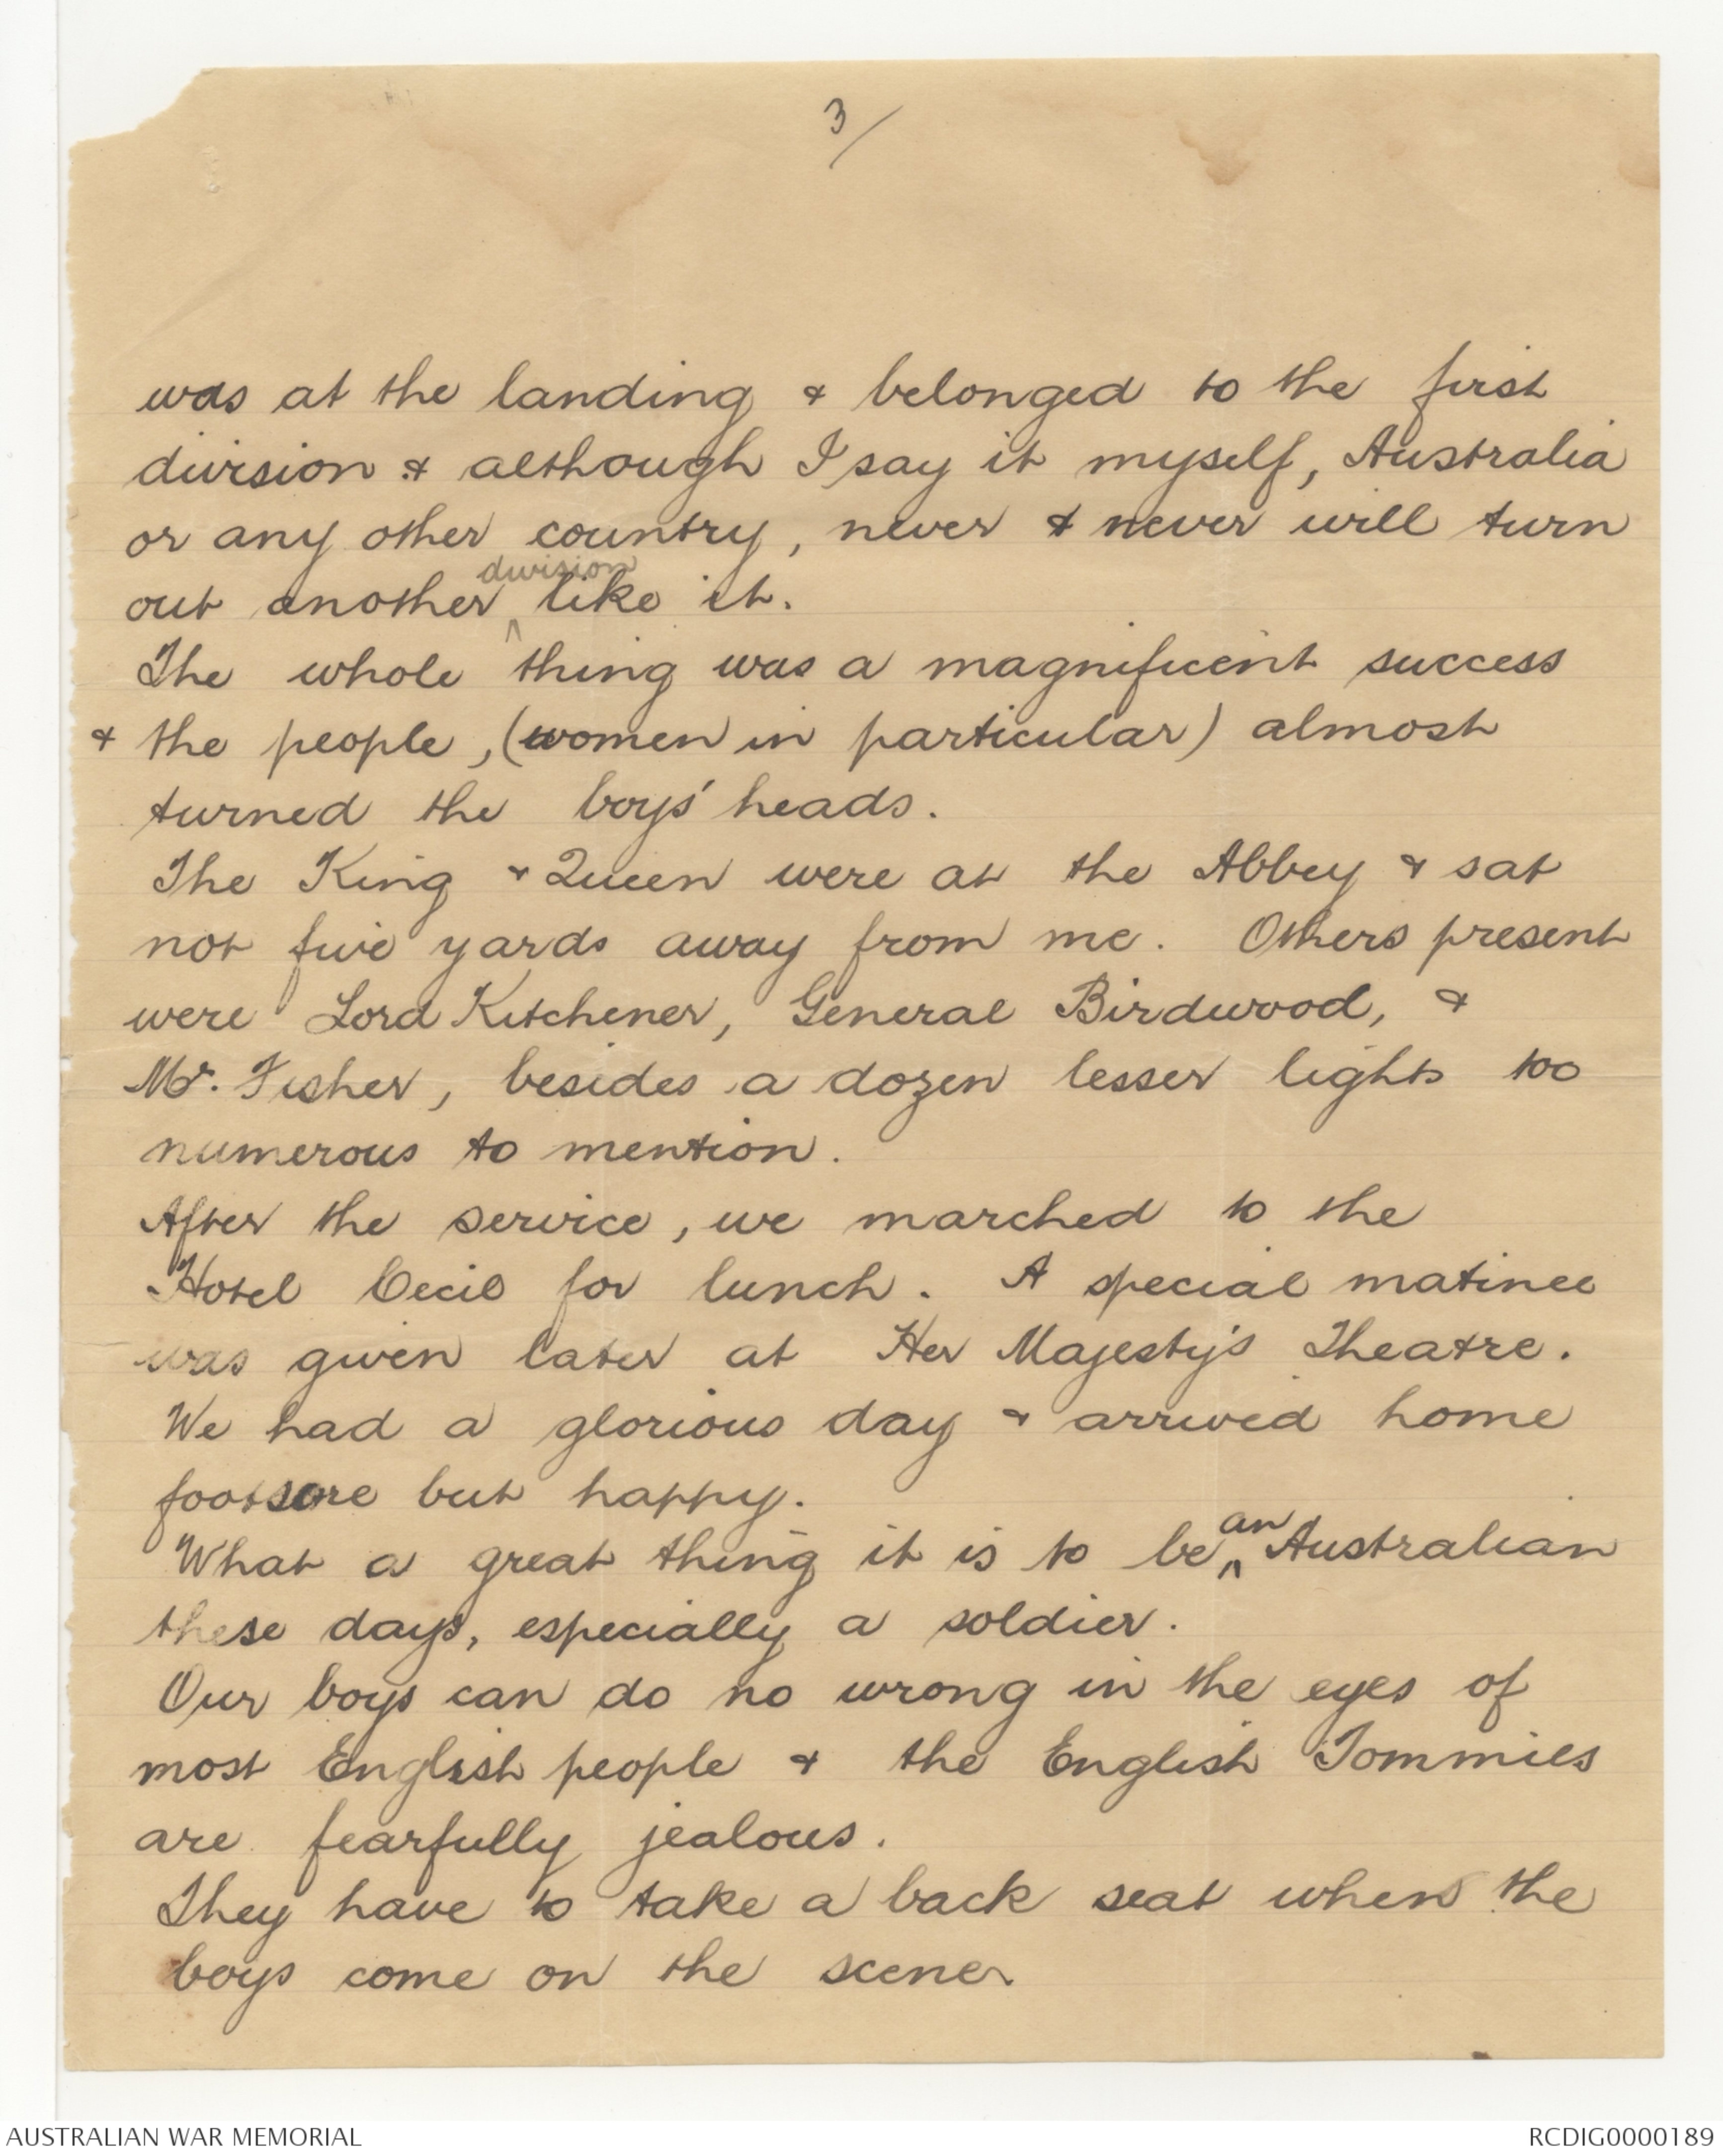 3/
was at the landing & belonged to the first
division & although I say it myself, Australia
or any other country, never & never will turn
out another division like it.
The whole thing was a magnificent success
& the people, (women in particular) almost
turned the boys' heads.
The King & Queen were at the Abbey & sat
not five yards away from me. Others present
were Lord Kitchener, General Birdwood, &
Mr. Fisher, besides a dozen lesser lights too
numerous to mention.
After the service, we marched to the
Hotel Cecil for lunch. A special matinee
was given later at Her Majesty's Theatre.
We had a glorious day & arrived home
footsore but happy.
What a great thing it is to be an Australian
these days, especially a soldier.
Our boys can do no wrong in the eyes of
most English people & the English Tommies
are fearfully jealous.
They have to take a back seat when the
boys come on the scene.
AUSTRALIAN WAR MEMORIAL
RCDIG0000189